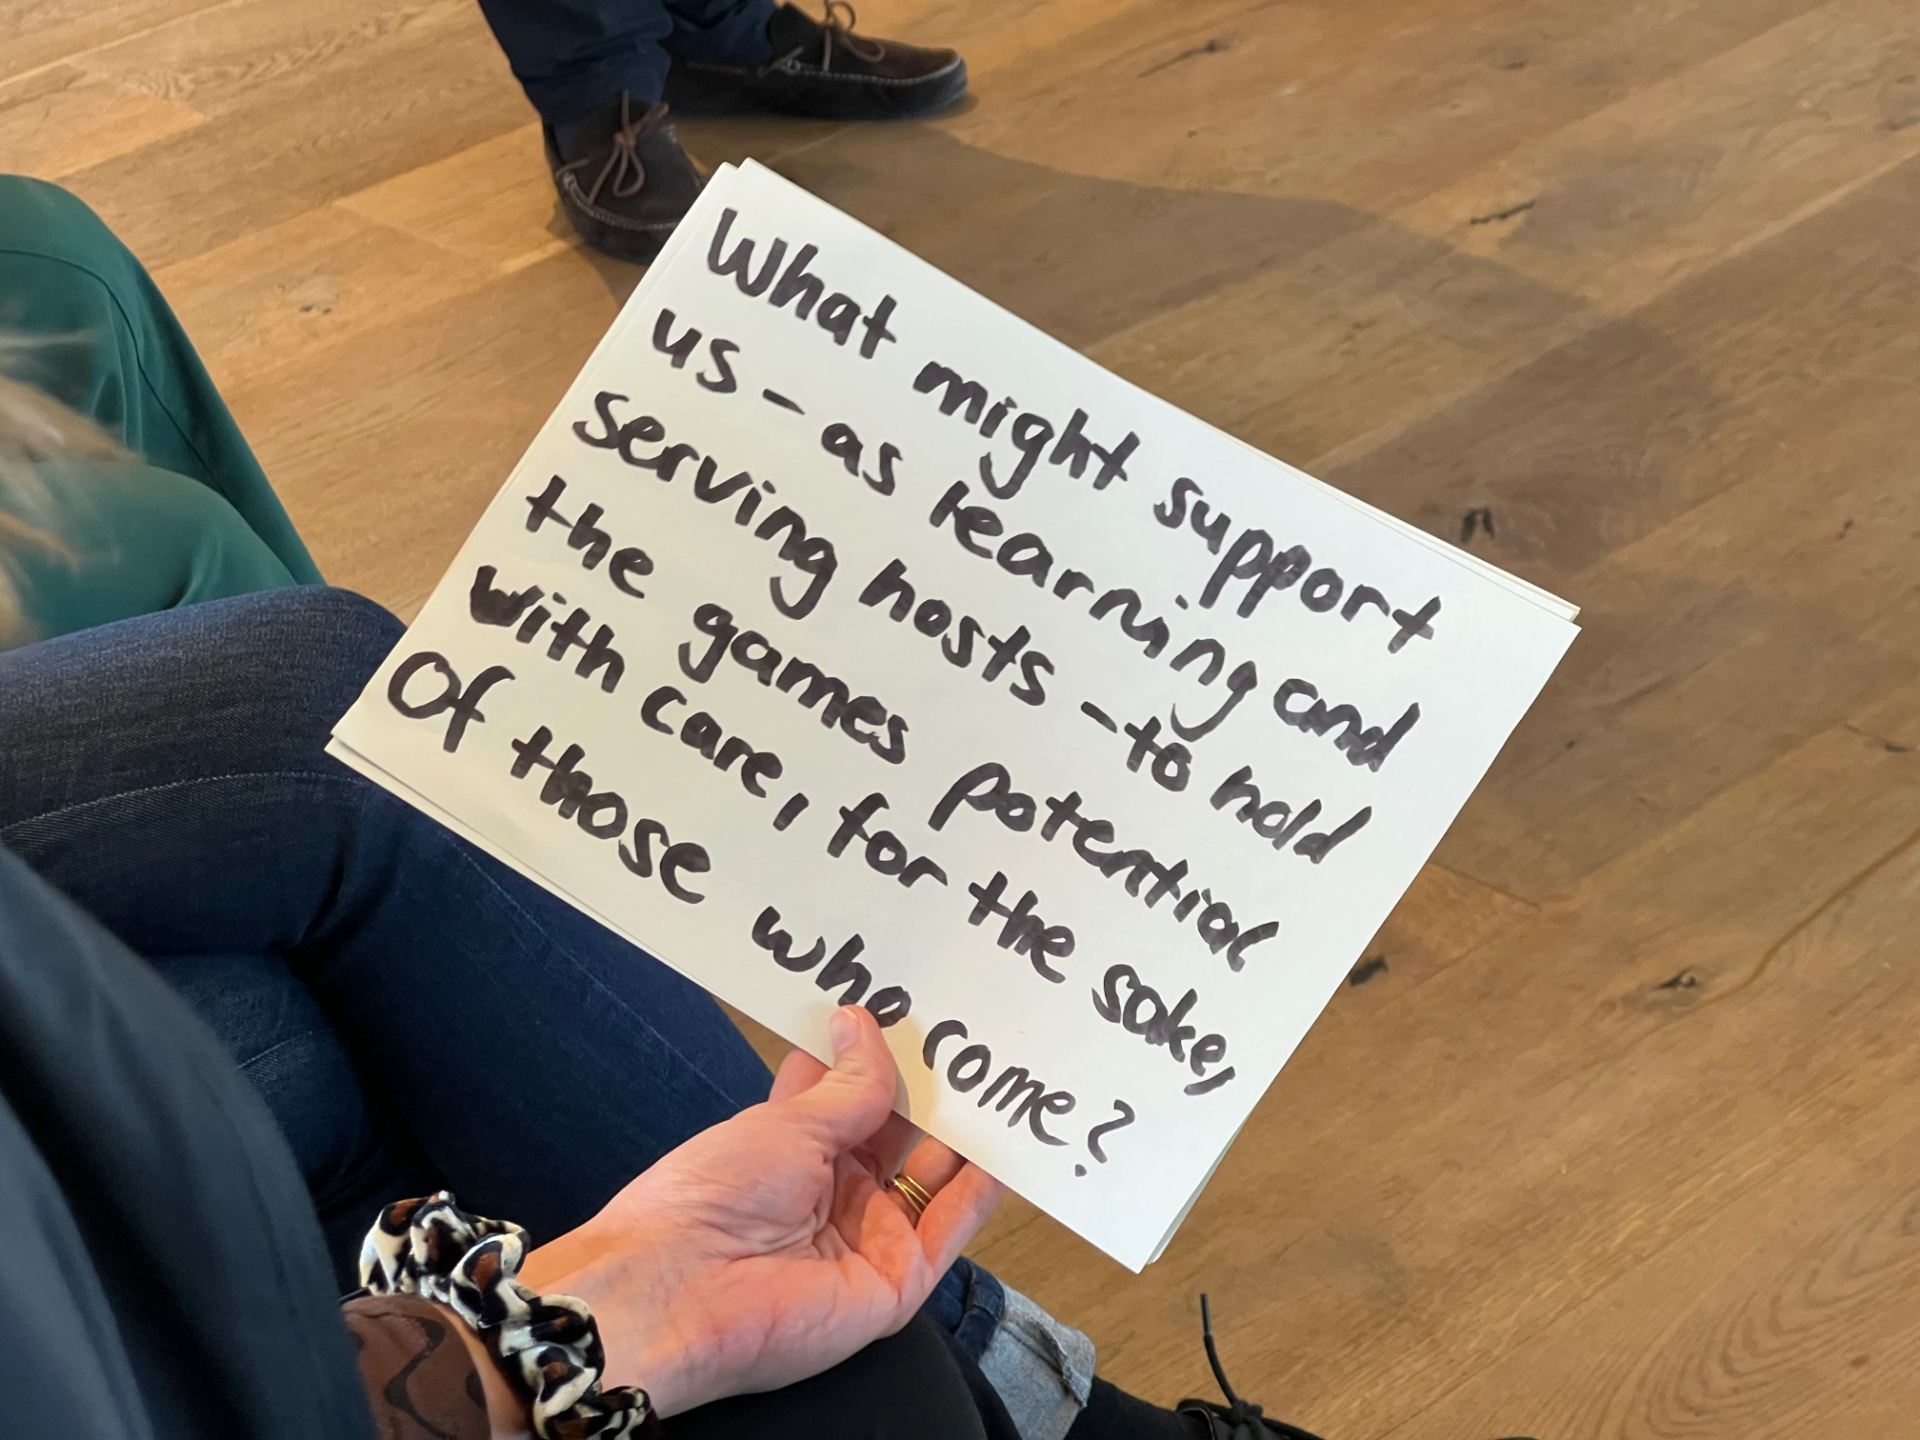 What might support
us - as learning and
serving hosts - to hold
the games potential
with care, for the sake,
Of those who come?